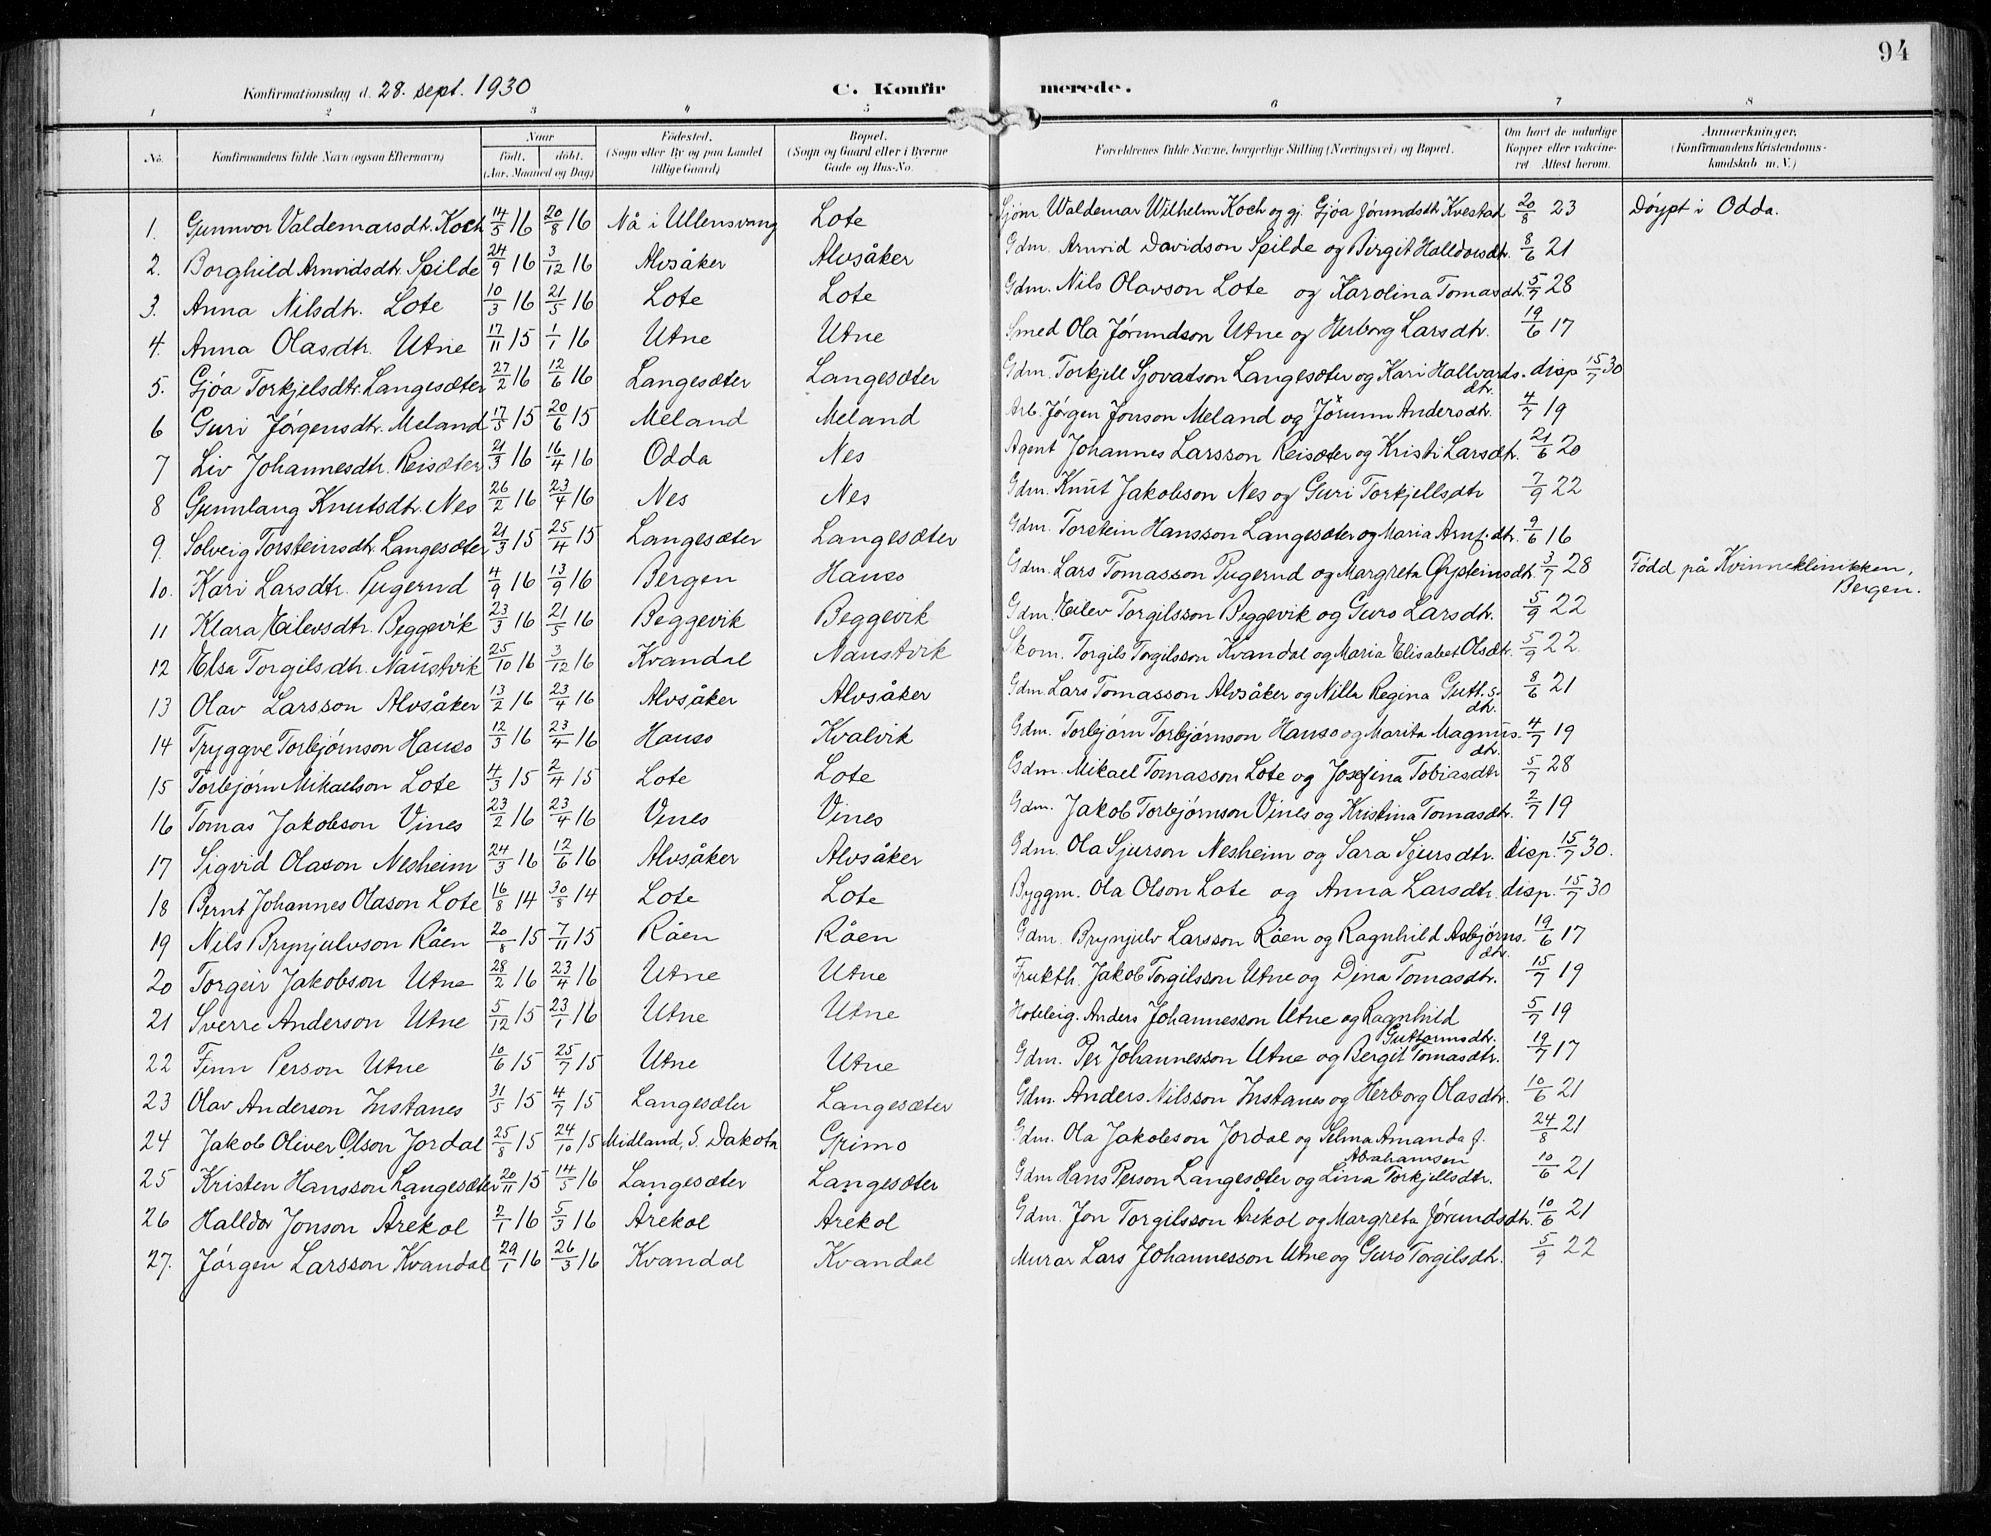 94
Konfirmationsdag d. 28. sept. 1930 C. Konfir merede.
1 2 3 4 5 6 7 8
No. Konfirmandens fulde Navn (ogsaa Efternavn) Naar født, døbt. (Aar, Maaned og Dag) Fødested. (Sogn eller By og paa Landet tillige Gaard) Bopæl. (Sogn og Gaard eller i Byerne Gade og Hus-No. Forældrenes fulde Navne, borgerlige Stilling (Næringsvei) og Bopæl. Om havt de naturlige Kopper eller vakcineret Attest herom. Anmærkninger. (Konfirmandens Kristendomskundskab m. V.)
1. Gunnvor Valdemarsdt. Koch 14/5 16 20/8 16 Nå i Ullensvang Lote Sjøm. Waldemar Wilhelm Koch og gj. Gjøa Jørundsdt. Kvestad 20/8 23 Døypt i Odda.
2. Borghild Arnvidsdtr. Spilde 24/9 16 3/12 16 Alvsåker Alvsåker Gdm. Arnvid Davidson Spilde og Birgit Halldorsdtr. 8/6 21
3. Anna Nilsdtr. Lote 10/3 16 21/5 16 Lote Lote Gdm. Nils Olavson Lote og Karolina Tomasdtr. 5/7 28
4. Anna Olasdtr. Utne 17/11 15 1/1 16 Utne Utne Smed Ola Jørundson Utne og Herborg Larsdtr. 19/6 17
5. Gjøa Torkjelsdtr. Langesæter 27/2 16 12/6 16 Langesæter Langesæter Gdm. Torkjell Sjovatson Langesæter og Kari Hallvards- dtr. disp 15/7 30
6 Guri Jørgensdtr. Meland 17/5 15 20/6 15 Meland Meland Arb. Jørgen Jonson Meland og Jørunn Andersdtr. 4/7 19
7 Liv Johannesdtr. Reisæter 21/3 16 16/4 16 Odda Nes Agent Johannes Larsson Reisæter og Kristi Larsdtr. 21/6 20
8 Gunnlaug Knutsdtr. Nes 26/2 16 23/4 16 Nes Nes Gdm. Knut Jakobson Nes og Guri Torkjellsdtr 7/9 22
9. Solveig Torsteinsdtr. Langesæter 21/3 15 25/4 15 Langesæter Langesæter Gdm. Torstein Hansson Langesæter og Maria Arnf.dtr. 9/6 16
10. Kari Larsdtr. Pugerud 4/9 16 13/9 16 Bergen Hauso Gdm. Lars Tomasson Pugerud og Margreta Øysteinsdtr. 3/7 28 Född på Kvinneklinikken, Bergen.
11 Klara Eilevsdtr. Beggevik 23/3 16 21/5 16 Beggevik Beggevik Gdm. Eilev Torgilsson Beggevik og Guro Larsdtr. 5/9 22
12 Elsa Torgilsdtr. Naustvik 25/10 16 3/12 16 Kvandal Naustvik Skom. Torgils Torgilsson Kvandal og Maria Elisabet Olsdtr. 5/9 22
13 Olav Larsson Alvsåker 13/2 16 23/4 16 Alvsåker Alvsåker Gdm. Lars Tomasson Alvsåker og Nilla Regina Gutt.s- dtr. 8/6 21
14 Tryggve Torbjørnson Hauso 12/3 16 23/4 16 Hauso Kvalvik Gdm. Torbjørn Torbjørnson Hauso og Marita Magnus- dtr. 4/7 19
15 Torbjørn Mikaelson Lote 4/3 15 2/4 15 Lote Lote Gdm. Mikael Tomasson Lote og Josefina Tobiasdtr 5/7 28
16 Tomas Jakobson Vines 23/2 16 23/4 16 Vines Vines Gdm. Jakob Torbjørnson Vines og Kristina Tomasdtr. 2/7 19
17 Sigvid Olason Nesheim 24/3 16 12/6 16 Alvsåker Alvsåker Gdm. Ola Sjurson Nesheim og Sara Sjursdtr. disp. 15/7 30.
18 Bernt Johannes Olason Lote 16/8 14 30/8 14 Lote Lote Byggm. Ola Olson Lote og Anna Larsdtr. disp. 15/7 30
19 Nils Brynjulvson Råen 20/8 15 7/11 15 Råen Råen Gdm. Brynjulv Larsson Råen og Ragnhild Asbjørns- dtr. 19/6 17
20 Torgeir Jakobson Utne 28/2 16 23/4 16 Utne Utne Frukth. Jakob Torgilsson Utne og Dina Tomasdtr. 15/7 19
21 Sverre Anderson Utne 5/12 15 23/1 16 Utne Utne Hoteleig. Anders Johannesson Utne og Ragnhild Guttormsdtr. 5/7 19
22 Finn Person Utne 10/6 15 25/7 15 Utne Utne Gdm. Per Johannesson Utne og Bergit Tomasdtr. 19/7 17
23 Olav Anderson Instanes 31/5 15 4/7 15 Langesæter Langesæter Gdm. Anders Nilsson Instanes og Herborg Olasdtr. 10/6 21
24 Jakob Oliver Olson Jordal 25/8 15 24/10 15 Midland, S. Dakota Grimo Gdm. Ola Jakobson Jordal og Selma Amanda f. Abrahamsen 24/8 21
25 Kristen Hansson Langesæter 20/11 15 14/5 16 Langesæter Langesæter Gdm Hans Person Langesæter og Lina Torkjellsdtr. 10/6 21
26 Halldor Jonson Årekol 2/1 16 5/3 16 Årekol Årekol Gdm. Jon Torgilsson Årekol og Margreta Jørundsdtr. 10/6 21
27. Jørgen Larsson Kvandal 29/1 16 26/3 16 Kvandal Kvandal Murar Lars Johannesson Utne og Guro Torgilsdtr. 5/9 22